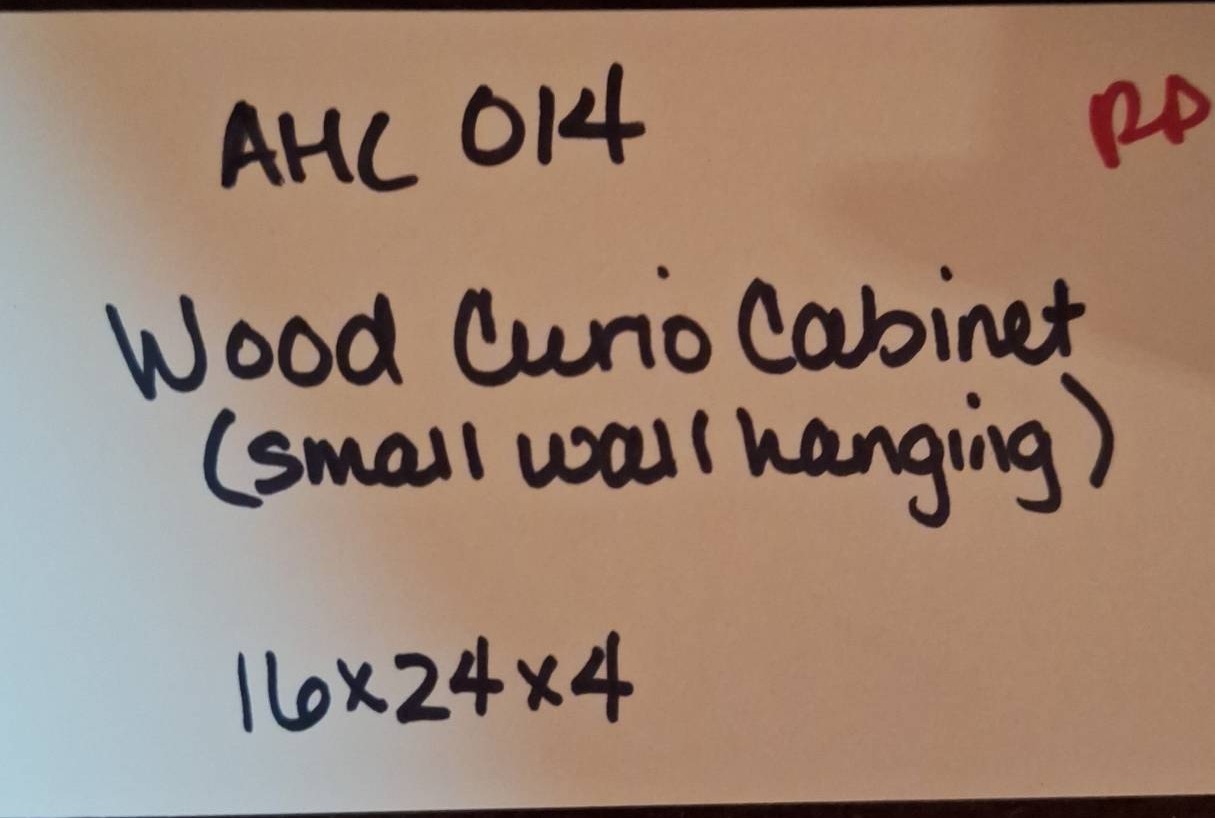 AHC 014 RD
Wood Curio Cabinet
(small wall hanging)
16x24x4